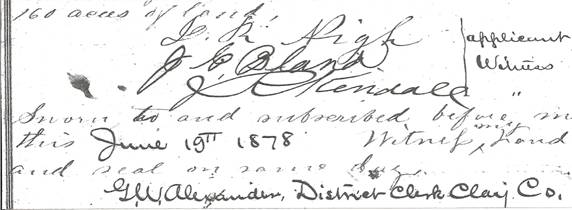 160 acres of land,
L. R. Pigh applicant
J. E. Bland Witness
J. Kendall "
Sworn to and subscribed before me
this June 19th 1878 Witness my hand
and seal on same day.
G. W. Alexander, District Clerk Clay Co.